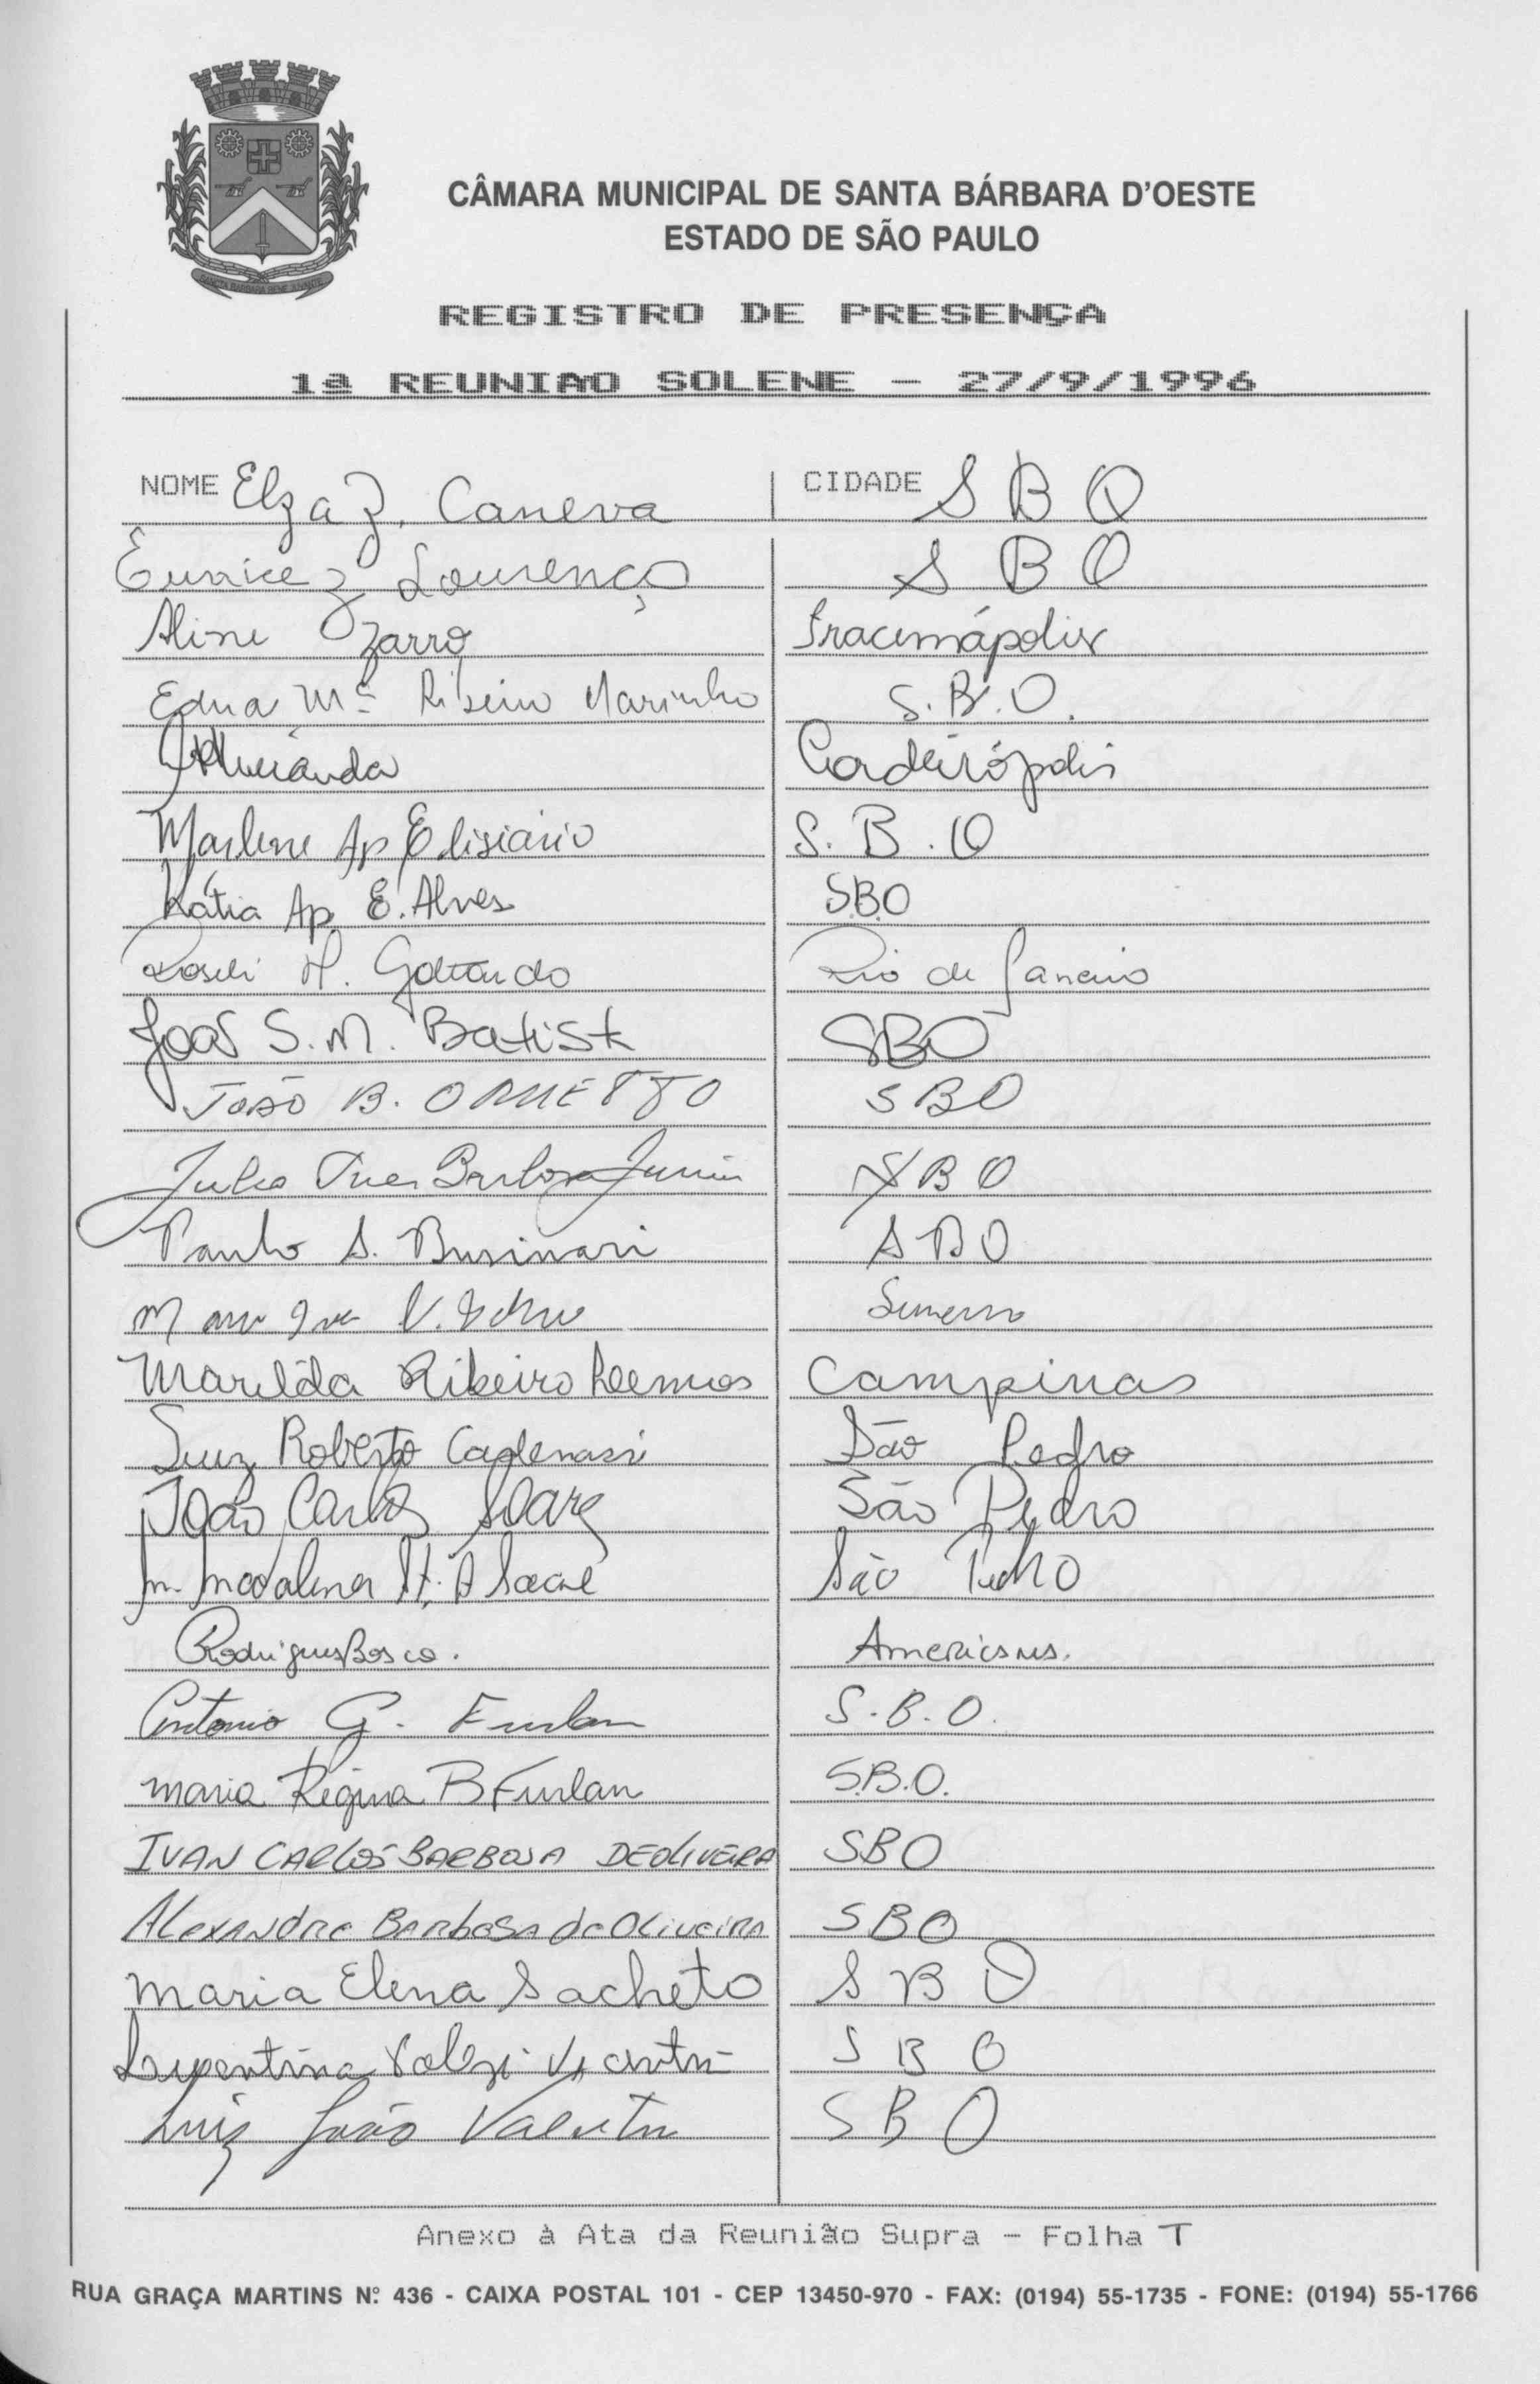 CÂMARA MUNICIPAL DE SANTA BÁRBARA D'OESTE
ESTADO DE SÃO PAULO
REGISTRO DE PRESENÇA
1ª REUNIAO SOLENE - 27/9/1996
NOME Elza Z. Caneva CIDADE S B O
Eunice Z Lourenço S B O
Aline Zarro Iracemápolis
Edna Mª Ribeiro Marinho S.B.O.
Cordeirópolis
Marlene Ap Elisiario S.B.O
Kátia Ap. E. Alves S.B.O
Roseli A. Rio de Janeiro
João S.M. Batista SBO
JOÃO B. ORMETTO SBO
Barbosa Junior SBO
Paulo S. Businari SBO
V. Sumaré
Marilda Ribeiro Lemos Campinas
Luiz Roberto São Pedro
João Carlos Soares São Pedro
M. Madalena São Pedro
Rodrigues Bosco. Americana.
Antonio G. Furlan S.B.O.
Maria Regina B Furlan S.B.O.
IVAN CARLOS BARBOSA DE OLIVEIRA SBO
ALEXANDRE BARBOSA de OLIVEIRA SBO
Maria Elena Sacheto S B O
S B O
Luiz João S B O
Anexo à Ata da Reunião Supra - Folha T
RUA GRAÇA MARTINS Nº 436 - CAIXA POSTAL 101 - CEP 13450-970 - FAX: (0194) 55-1735 - FONE: (0194) 55-1766